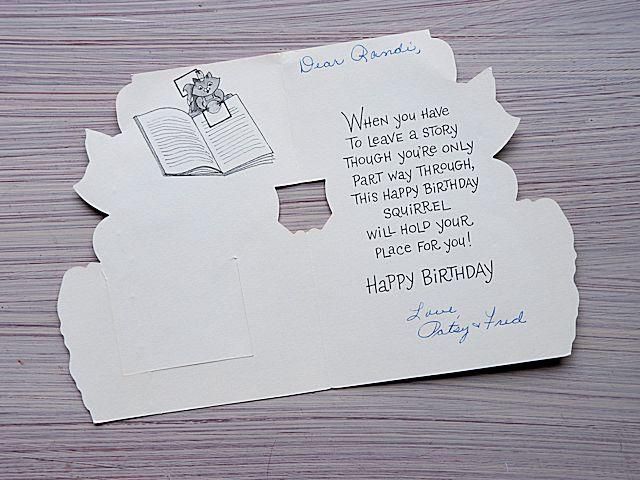 Dear Randi,
When you have
to leave a story
though you're only
part way through,
this happy birthday
squirrel
will hold your
place for you!
Happy Birthday
Love,
Patsy & Fred